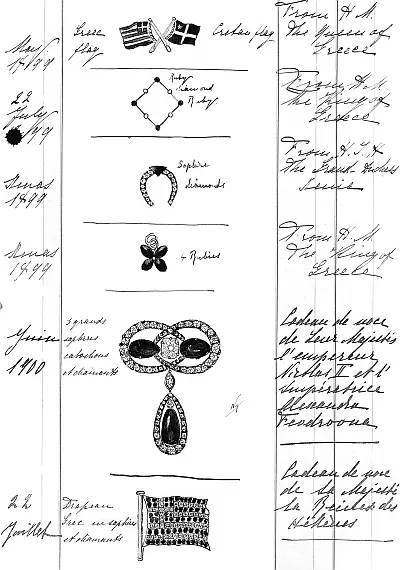 May
1899
Grec
flag
Cretan flag
From H.M.
The Queen of
Greece
22
July
99
Ruby
diamond
Ruby
From H.M.
The King of
Greece
Xmas
1899
Saphire
diamonds
From H.I.H
The Grand
Xmas
1899
4 Rubies
From H.M.
The King of
Greece
Juin
1900
3 grands
saphires
cabochons
et diamants
Cadeau de noce
de Leur Majestés
l'empereur
Nicholas II et l'
Impératrice
Alexandra
Feodrovna
22
Juillet
Drapeau
Grec en saphires
et diamants
Cadeau de noce
de Sa Majesté
la Reine des
Hélènes